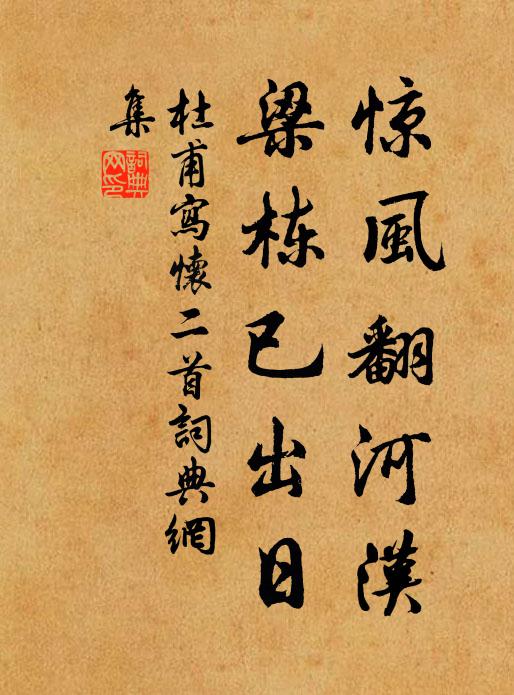 惊風翻河漢
梁栋已出日
杜甫寫懷二首詞典網
集
詞典
网印